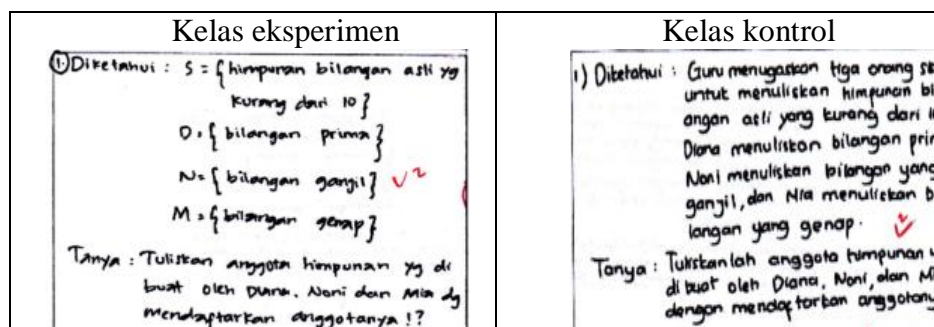 Kelas eksperimen
1. Diketahui : S = { himpunan bilangan asli yg
kurang dari 10 }
D = { bilangan prima }
N = { bilangan ganjil } √2
M = { bilangan genap }
Tanya : Tuliskan anggota himpunan yg di
buat oleh Diana, Noni dan Mia dg
mendaptarkan anggotanya !?
Kelas kontrol
1) Diketahui : Guru menugaskan tiga orang
untuk menuliskan himpunan
angan asli yang kurang dari
Diana menuliskan bilangan
Noni menuliskan bilangan yang
ganjil, dan Nia menuliskan
langan yang genap. √2
Tanya : Tuliskanlah anggota himpunan
di buat oleh Diana, Noni, dan
dengan mendaptarkan